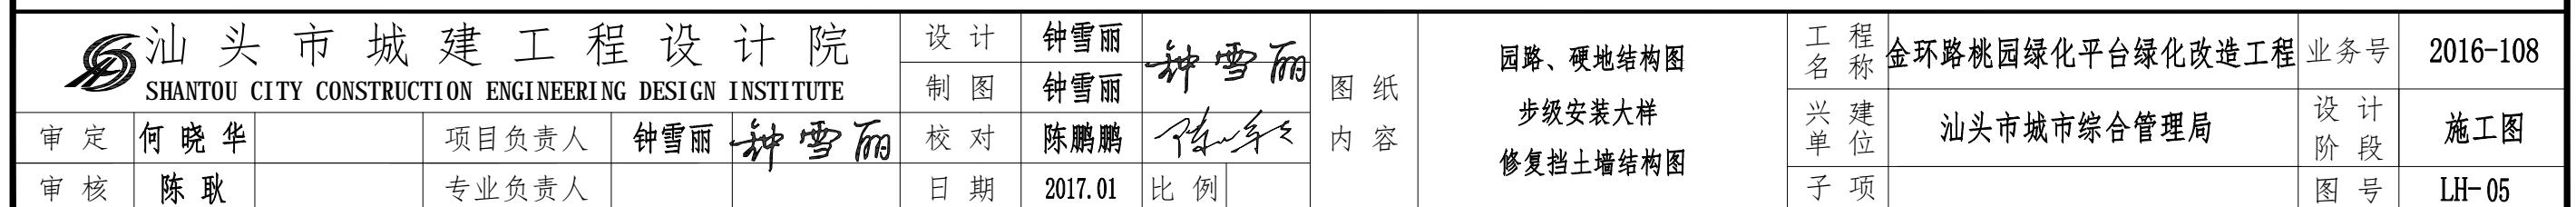 汕头市城建工程设计院
SHANTOU CITY CONSTRUCTION ENGINEERING DESIGN INSTITUTE
审定 何晓华 项目负责人 钟雪丽 钟雪丽
审核 陈耿 专业负责人
设计 钟雪丽 钟雪丽
制图 钟雪丽
校对 陈鹏鹏
日期 2017.01 比例
图纸内容
园路、硬地结构图
步级安装大样
修复挡土墙结构图
工程名称 金环路桃园绿化平台绿化改造工程 业务号 2016-108
兴建单位 汕头市城市综合管理局 设计阶段 施工图
子项 图号 LH-05